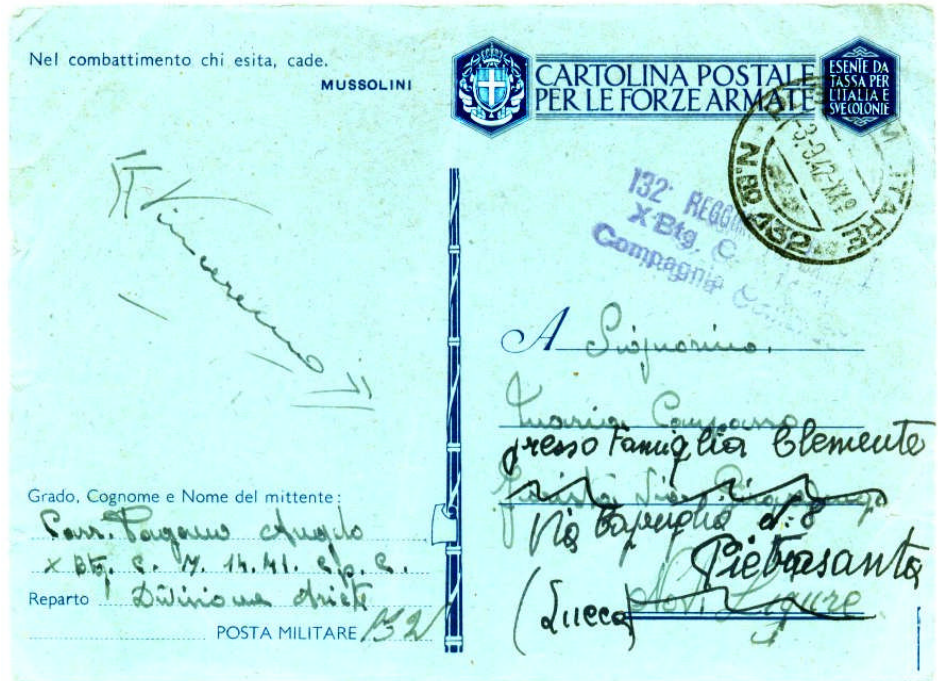 Nel combattimento chi esita, cade.
MUSSOLINI
CARTOLINA POSTALE
PER LE FORZE ARMATE
ESENTE DA
TASSA PER
L'ITALIA E
SVE COLONIE
3-9-42-XX
N.RO 132
132° REGG
X Btg. C.
Compagnia
Vinceremo
A Signorina
Maria
presso Famiglia Clemente
Via Capriglia n. 8
Pietrasanta
(Lucca)
Novi Ligure
Grado, Cognome e Nome del mittente:
Pagano Angelo
X Btg. C. M. 14.41. C.p.C.
Reparto Divisione Ariete
POSTA MILITARE 132